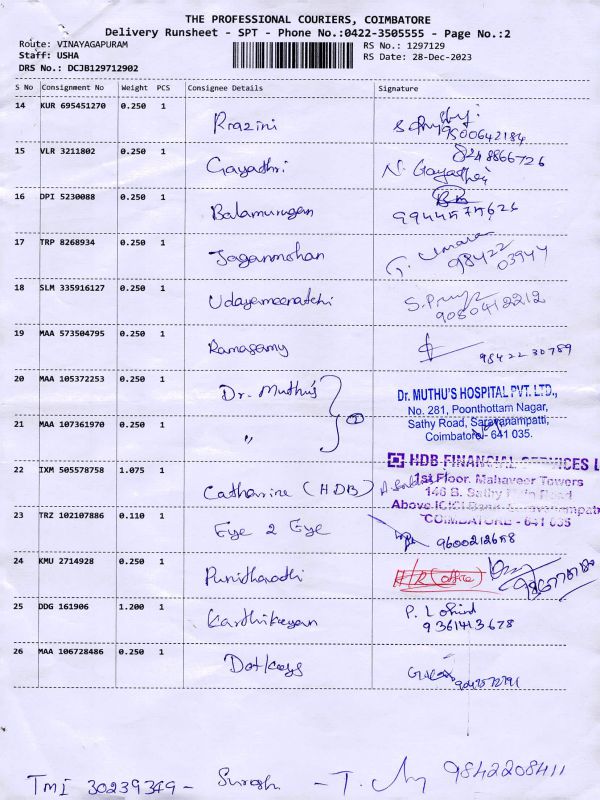 THE PROFESSIONAL COURIERS, COIMBATORE
Delivery Runsheet - SPT - Phone No.:0422-3505555 - Page No.:2
Route: VINAYAGAPURAM
Staff: USHA
DRS No.: DCJB129712902
RS No.: 1297129
RS Date: 28-Dec-2023
S No Consignment No Weight PCS Consignee Details Signature
14 KUR 695451270 0.250 1 Prazini 9500642184
15 VLR 3211802 0.250 1 Gayathri 8248866726
N. Gayathri
16 DPI 5230088 0.250 1 Balamurugan
17 TRP 8268934 0.250 1 Jaganmohan 98422
03944
18 SLM 335916127 0.250 1 Udayameenatchi
9080412212
19 MAA 573504795 0.250 1 Ramasamy 98422 30789
20 MAA 105372253 0.250 1 Dr. Muthu's
Dr. MUTHU'S HOSPITAL PVT. LTD.,
No. 281, Poonthottam Nagar,
Sathy Road, Saravanampatti,
Coimbatore- 641 035.
21 MAA 107361970 0.250 1 "
22 IXM 505578758 1.075 1 Catharine (HDB)
HDB FINANCIAL SERVICES L
1st Floor, Mahaveer Towers
146 B, Sathy Main Road
Above ICICI Bank, Saravanampatti
COIMBATORE - 641 035
23 TRZ 102107886 0.110 1 Eye 2 Eye 9600212658
24 KMU 2714928 0.250 1 Punitharathi
25 DDG 161906 1.200 1 Karthikeyan
9361413678
26 MAA 106728486 0.250 1 Dotkays
TMI 30239349 - Suresh - T. 9842208411